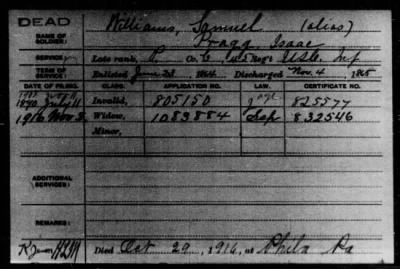 DEAD
NAME OF SOLDIER:
Williams, Samuel (alias)
Bragg, Isaac
SERVICE:
Late rank, P, Co. C, Reg't U.S.C. Inf
TERM OF SERVICE:
Enlisted June 23, 1864 Discharged Nov. 4, 1865
DATE OF FILING. CLASS. APPLICATION NO. LAW. CERTIFICATE NO.
1890 July 11 Invalid, 805150 825577
1916 Nov 8 Widow, 1083884 Sep 832546
Minor,
ADDITIONAL SERVICES:
REMARKS:
Died Oct 29, 1916, at Phila Pa